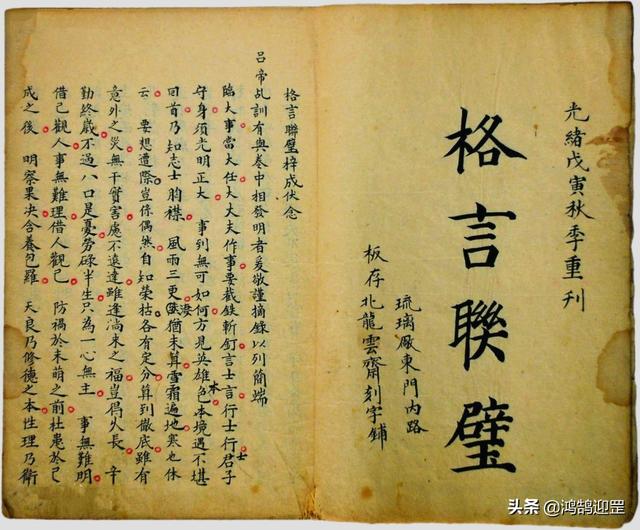 光緒戊寅秋季重刊
格言聯璧
琉璃厰東門內路
板存北龍雲齋刻字鋪
格言聯璧梓成伏念
呂帝乩訓有與巻中相發明者爰敬謹摘錄以列簡端
臨大事當大任大夫作事要截鉄斬釘言士言行士行君子
守身須光明正大 事到無可如何方見英雄色本境遇不堪
回首乃知志士胸襟 風雨三更愁猶未算雪霜遍地寒也休
云 要想遭際豈係偶然自知榮枯各有定分算到徹底雖有
意外之災無干實害處不遠達雖逢淌來之福豈得久長 辛
勤終歲不過八口是憂勞碌半生只為一心無主 事無難明
借己觀人事無難理借人觀己 防禍於未萌之前杜患於已
成之後 明察果決含養包羅 天良乃修德之本性理乃衛
头条 @鸿鹄迎罡